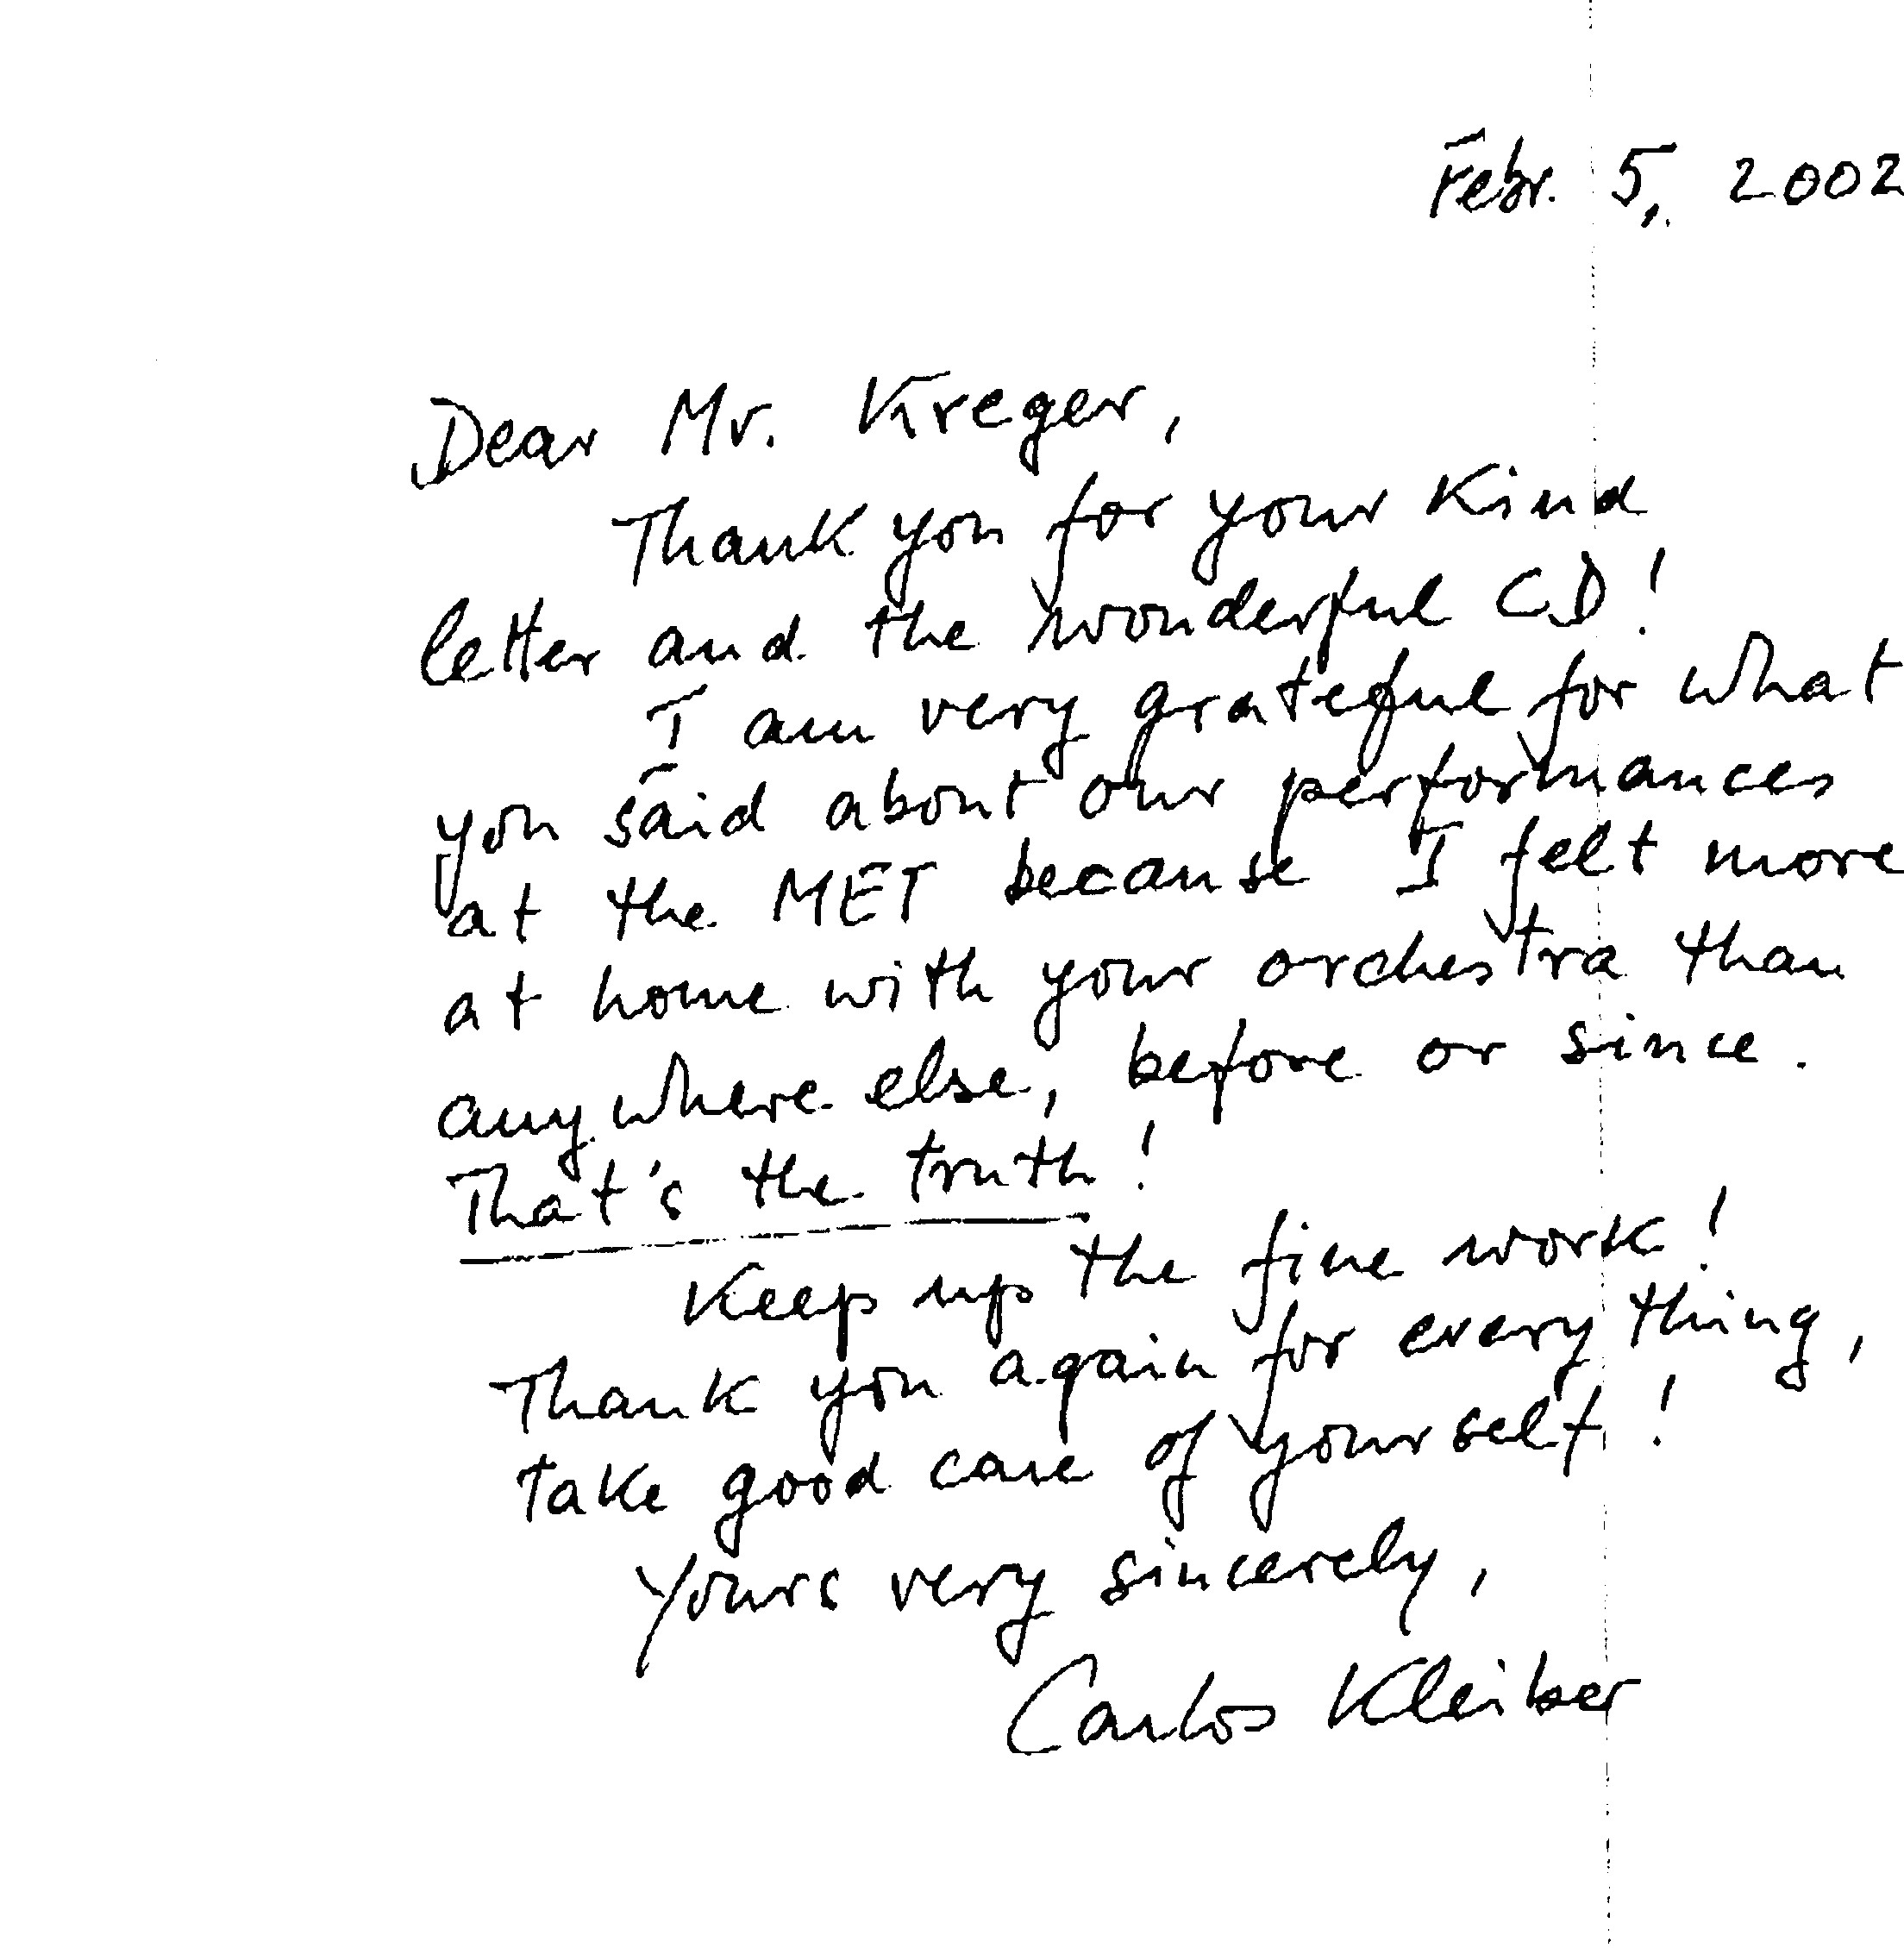 Febr. 5, 2002
Dear Mr. Kreger,
Thank you for your kind
letter and the wonderful CD!
I am very grateful for what
you said about our performances
at the MET because I felt more
at home with your orchestra than
anywhere else, before or since.
That's the truth!
Keep up the fine work!
Thank you again for everything,
take good care of yourself!
Yours very sincerely,
Carlos Kleiber